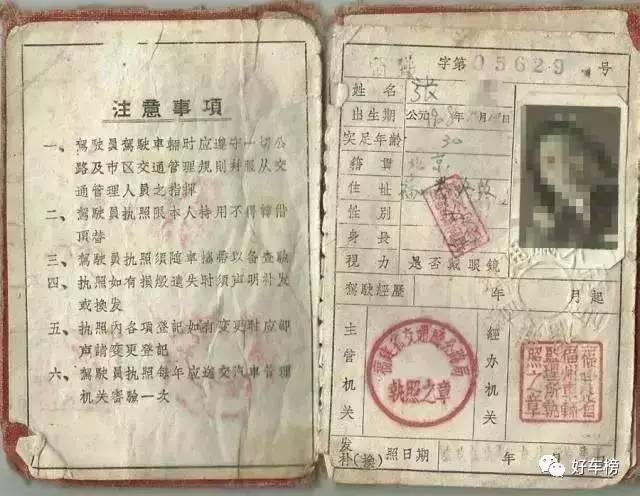 注意事項
一、駕駛員駕駛車輛时应遵守一切公
路及市区交通管理規則并服从交
通管理人員之指揮
二、駕駛員执照限本人持用不得轉借
頂替
三、駕駛員执照須随車攜带以备查驗
四、执照如有損毀遺失时須声明补发
或換发
五、执照内各項登記如有变更时应即
声請变更登記
六、駕駛員执照每年应送交汽車管理
机关審驗一次
字第05629号
姓名 張
出生期 公元
实足年齡 30
籍貫 北京
住址
性別
身長
視力 是否戴眼鏡
駕駛經歷 年 月起
主管机关
福建省交通廳公路局
執照之章
經办机关
福建省
福州車輛
監理所執
照之章
发
补(換) 照日期 年 月
好车榜